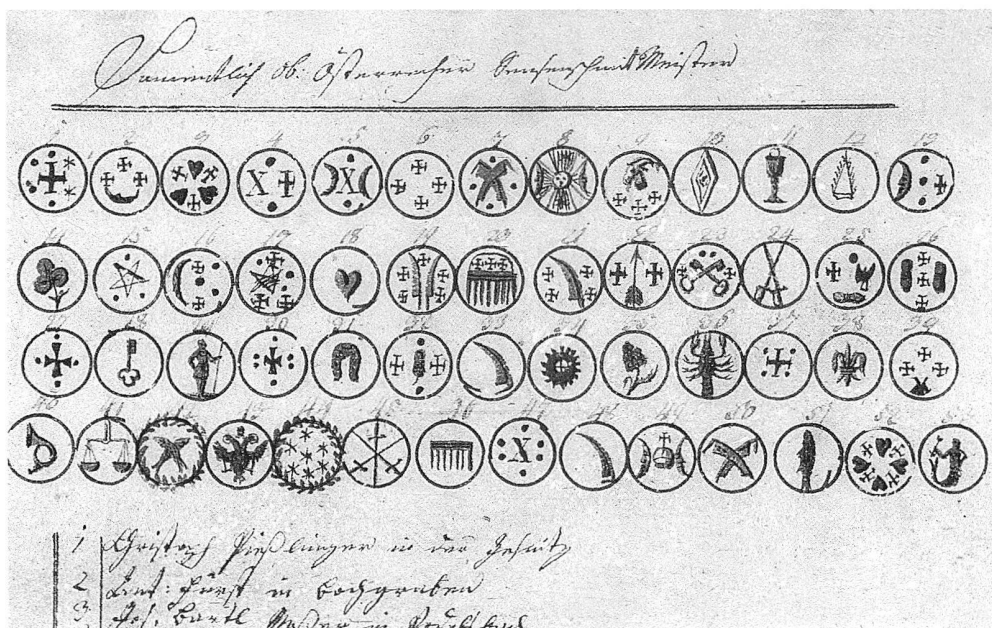 Sammentlich ob: Österreicher Sensenschmid Meister
1 2 3 4 5 6 7 8 9 10 11 12 13
X X
14 15 16 17 18 19 20 21 22 23 24 25 26
27 28 29 30 31 32 33 34 35 36 37 38 39
40 41 42 43 44 45 46 47 48 49 50 51 52 53
X
1 Christoph Pießlinger in der
2 Ant: Fürst in
3 Jos: in